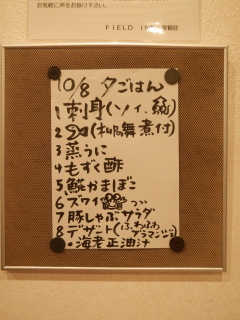 お気軽に声をお掛け下さい。
FIELD
10/8 夕ごはん
1 刺身(ソイ、
2 (柳の舞煮付)
3 蒸うに
4 もずく酢
5 鮭かまぼこ
6 ズワイ
7 豚しゃぶサラダ
8 デザート(ふわふわブラマンジェ)
・海老正油汁